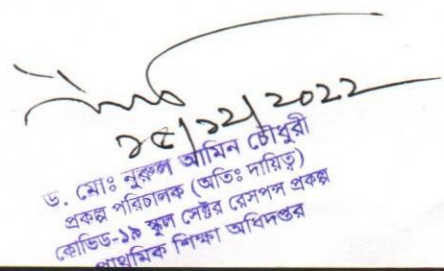 ২৫/১২/২০২২
ড. মোঃ নুরুল আমিন চৌধুরী
প্রকল্প পরিচালক (অতিঃ দায়িত্ব)
কোভিড-১৯ স্কুল সেক্টর রেসপন্স প্রকল্প
প্রাথমিক শিক্ষা অধিদপ্তর